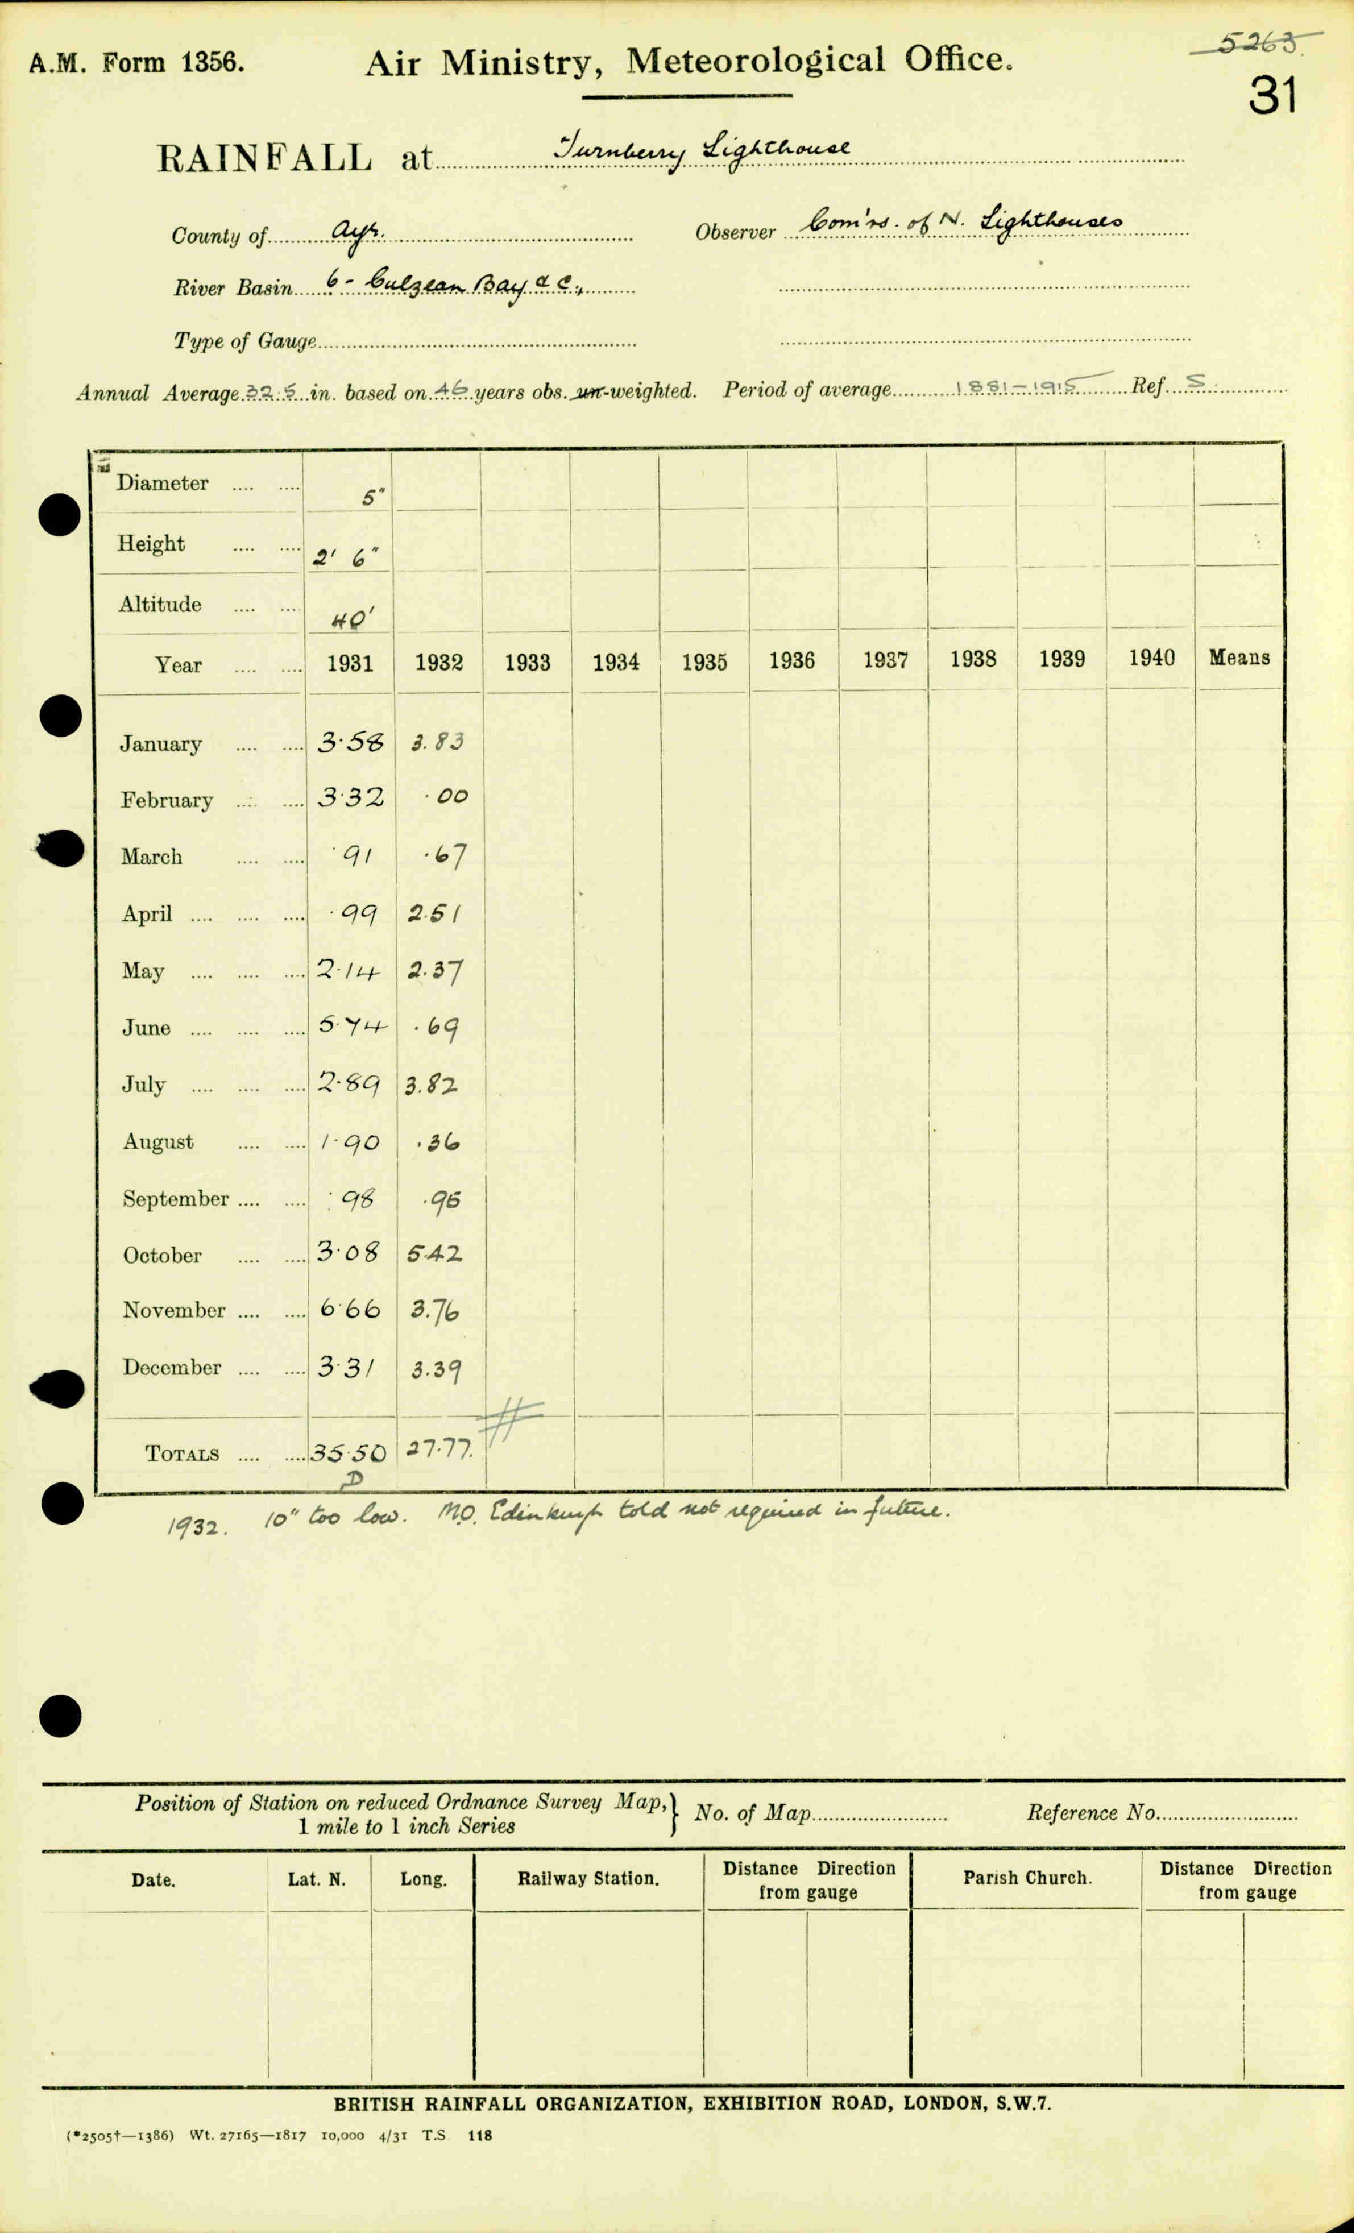 5263
A.M. Form 1356. Air Ministry, Meteorological Office.
31
RAINFALL at Turnberry Lighthouse
County of Ayr. Observer Com'rs. of N. Lighthouses
River Basin 6 - Culzean Bay &c.,
Type of Gauge
Annual Average 32.5 in. based on 46 years obs. un-weighted. Period of average 1881-1915 Ref. S
Diameter .... .... 5"
Height .... .... 2' 6"
Altitude .... .... 40'
Year .... .... 1931 1932 1933 1934 1935 1936 1937 1938 1939 1940 Means
January .... .... 3.58 3.83
February .... .... 3.32 .00
March .... .... .91 .67
April .... .... .... .99 2.51
May .... .... .... 2.14 2.37
June .... .... .... 5.74 .69
July .... .... .... 2.89 3.82
August .... .... 1.90 .36
September .... .... .98 .95
October .... .... 3.08 5.42
November .... .... 6.66 3.76
December .... .... 3.31 3.39
TOTALS .... .... 35.50 27.77.
D
1932. 10" too low. M.O. Edinburgh told not required in future.
Position of Station on reduced Ordnance Survey Map, } No. of Map Reference No.
1 mile to 1 inch Series
Date. Lat. N. Long. Railway Station. Distance Direction from gauge Parish Church. Distance Direction from gauge
BRITISH RAINFALL ORGANIZATION, EXHIBITION ROAD, LONDON, S.W.7.
(*2505†—1386) Wt. 27165—1817 10,000 4/31 T.S. 118